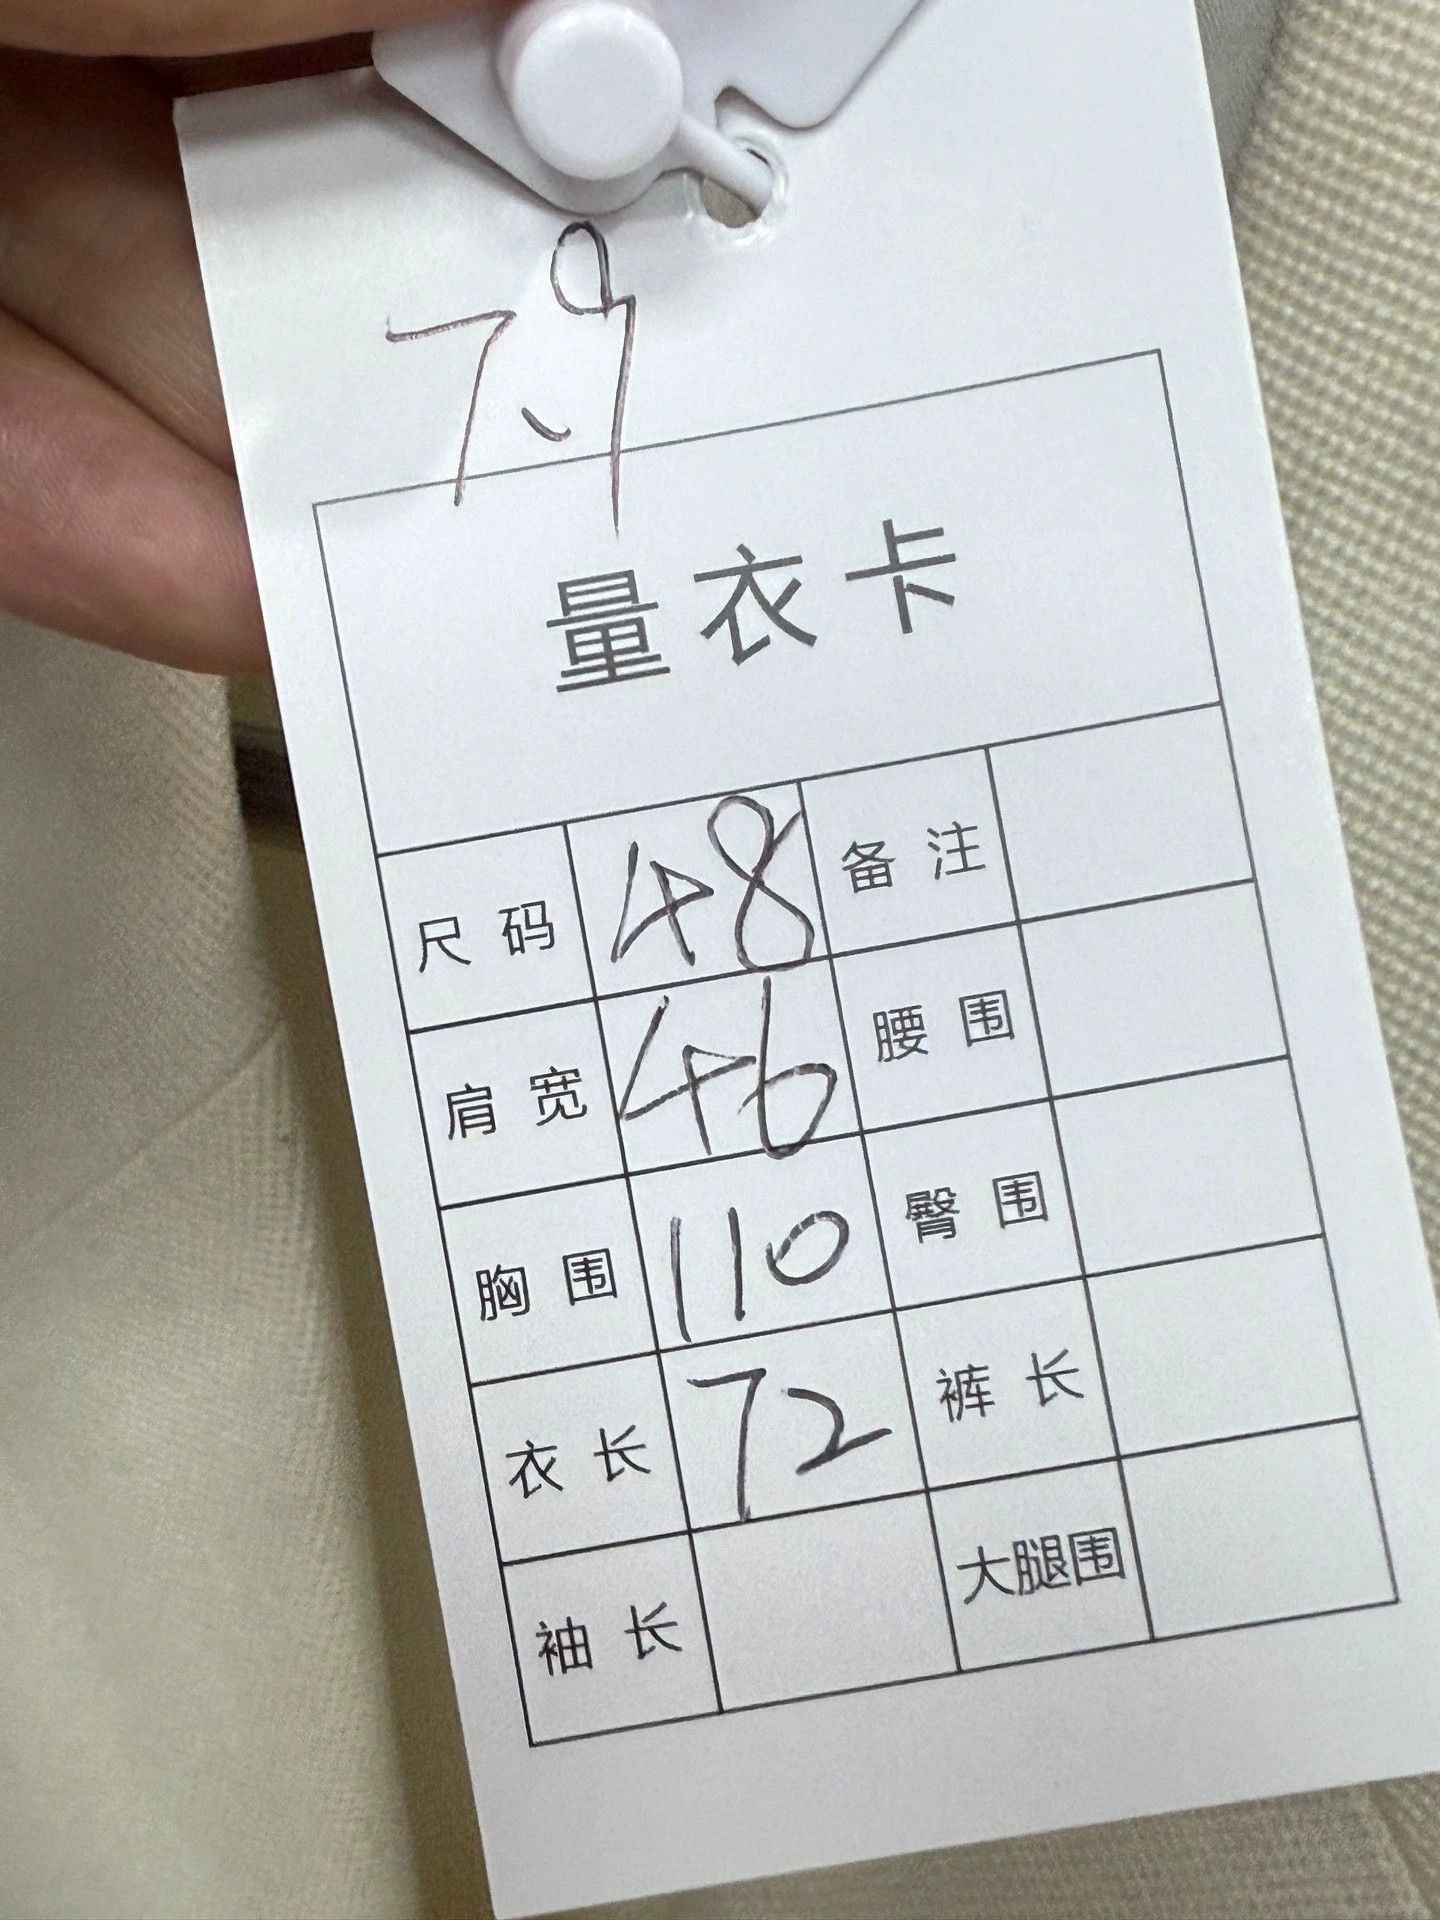 7.9
量衣卡
尺码 48 备注
肩宽 46 腰围
胸围 110 臀围
衣长 72 裤长
袖长 大腿围